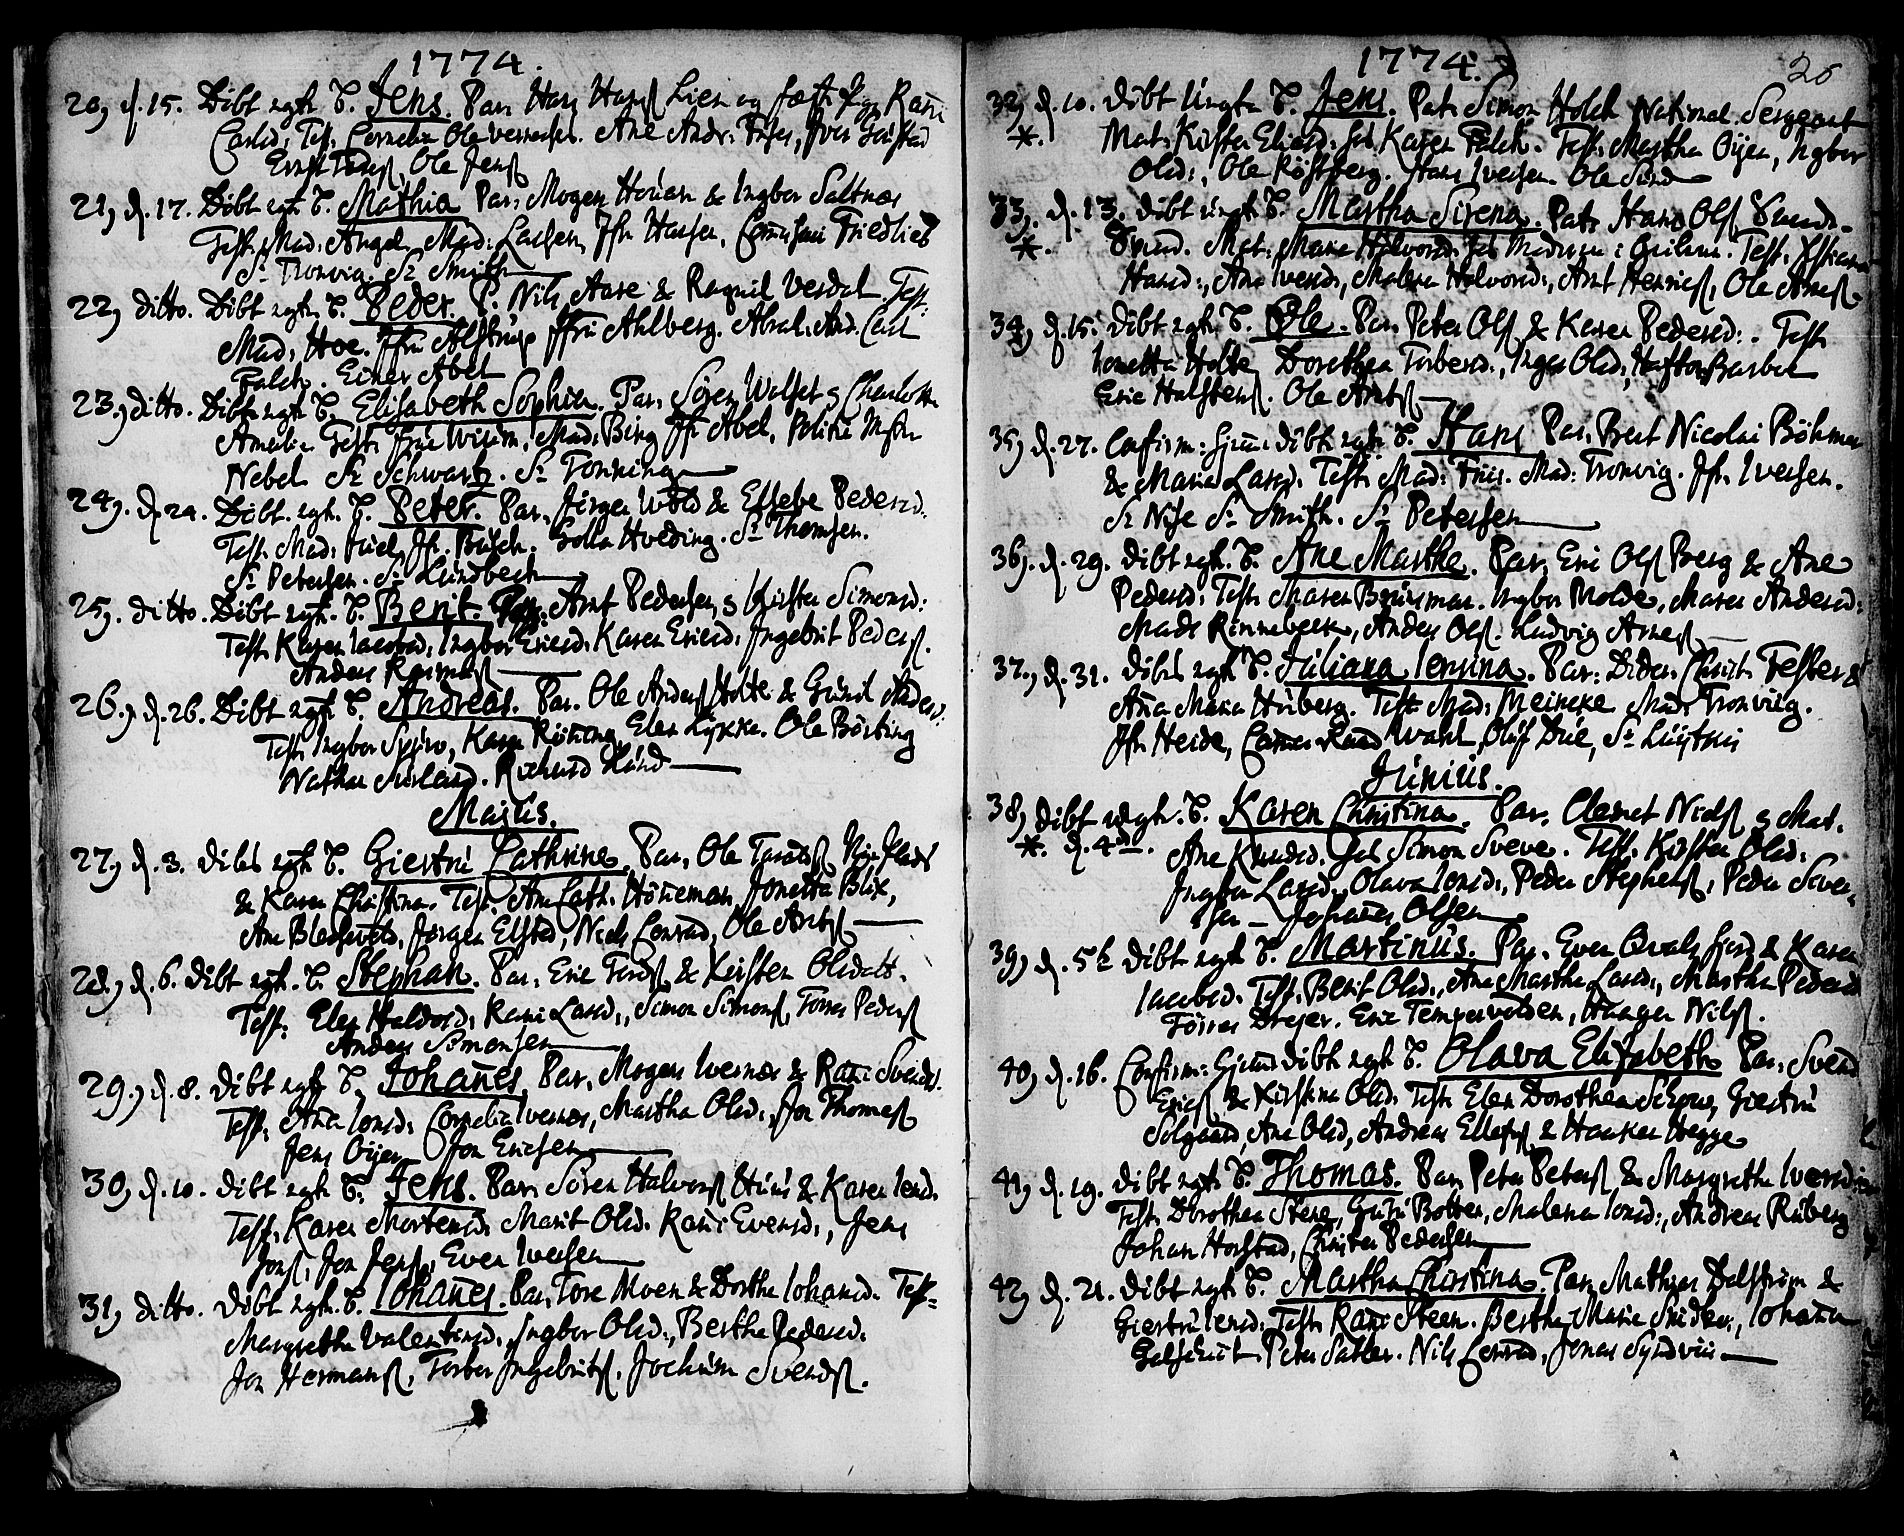 1774.
20, d. 15. Döbt egt. B. Jens. Par. Hans Hans Lien og
Carlsd. Test. Cornelia Ole Ane Andr:
Ernst Ole Jens
21, d. 17. Döbt egt. B. Mathia Par. Mogens & Ingbor Saltnæs
Test. Mad: Angel. Mad: Lassen, Jfr. Hansen, Friedlieb
Sr. Tronvig. Sr. Smith
22, ditto. Döbt egt. B. Peder. P. Nils Aare & Ragnil Verdal Test.
Mad: Hoe. Jfru Alstrup Jfru Ahlberg. Abrah. And. Carl
Falch. Einer Abel
23, ditto. Döbt egt. B. Elisabeth Sophia. Par. Sören Wulset & Charlotte
Amalia Test. Frue Wisum, Mad: Bing Jfr Abel, Politie Mstr
Nebel Sr. Schwartz. Sr. Tonning
24, d. 24. Döbt. egt. B. Peter. Par. Jörgen & Ellebe Pedersd.
Test. Mad: Juel, Jfr. Busch. Golla Hveding. Sr. Thomsen.
Sr. Petersen. Sr. Lundbech
25, ditto. Döbt egt. B. Berit Par. Arnt Pedersen & Kirsten Simonsd:
Test. Karen Jacobsd, Ingbor Ericsd, Karen Ericsd, Ingebrit Peders.
Anders Rasmus
26, d. 26. Döbt egt. B. Andreas. Par. Ole Anders Holte & Gunil Andersd:
Test. Ingbor Karen Rönning Elen Lykke. Ole Börting
Nathan Richard Hund
Majus.
27, d. 3. döbt egt B. Giertru Cathrine. Par. Ole
& Karen Christina. Test. Ane Cath. Höneman, Jonetta Blix,
Ane Jörgen Elstad, Niels Conrad, Ole Arnts
28, d. 6. döbt egt. B. Stephan. Par. Eric & Kirsten Olsdatt.
Test: Elen Haldorsd, Rani Larsd, Simon Simons, Torres Peders
Anders Simonsen
29, d. 8. döbt egt B. Johanes Par. Mogens Ivernæs & Rani Svendsd.
Test: Ana Jonsd, Cornelia Ivernæs, Martha Olsd, Jon Thomes
Jens Öyen Jon Ericsen
30, d. 10. döbt egt B. Jens. Par. Sören Halvors & Karen Jensd.
Test. Karen Mortensd. Marit Olsd. Rani Evensd, Jens
Jons, Jon Jens, Even Iversen
31, ditto. döbt egt. B. Johanes. Par. Tore Moen & Dorthe Johansd. Test.
Margrethe Valentinsd, Ingbor Olsd, Berthe Pedersd.
Jon Hermans, Torber Ingebrits, Jochum Svends.
1774.
26
32, d. 10. döbt Uegt B. Jens. Pat. Simon Holch National Sergeant
*. Mat. Kirsten Eliesd. hos Karen Falch. Test. Martha Öyen, Ingbor
Olsd, Ole Röstberg. Hans Iversen. Ole Sund
33, d. 13. döbt uegt. B. Martha Sirena. Pat. Hans Ols
*. Mat. Maria Halvorsd Test.
Hansd, Ane Iversd, Malena Halvorsd, Arnt Henrics, Ole Arnes
34, d. 15. döbt egt. B. Ole. Par. Peter Ols & Karen Pedersd. Test.
Jonetta Holte Dorothea Torbersd, Inger Olsd, Barbor
Eric Halstens. Ole Arnts
35, d. 27. Confirm: döbt egt. B. Hans Par. Brut Nicolai Böhmer
& Maria Larsd. Test. Mad: Friis. Mad: Tronvig. Jfr. Iversen.
Sr. Nise Sr. Smith. Sr. Petersen
36, d. 29. döbt egt. B. Ane Marthe. Par. Eric Ols Berg & Ane
Pedersd, Test. Maren Ingbor Molde, Maren Andersd:
Mads Rinnebeck, Anders Ols. Ludvig Arnes
37, d. 31. döbt egt B. Juliana Jensina. Par: Dider. Christ. Fester &
Ana Maria Huberg. Test. Mad: Meincke Mad. Tronvig.
Jfr. Heide, Wahl, Oluf Due, Sr.
Junius.
38, döbt uegt. B. Karen Christina. Par. Clemet Niels & Mat.
*. d. 4de. Ane Knudsd. hos Simon Sveve. Test. Kirsten Olsd.
Ingbor Larsd, Olava Jonsd, Peder Stephens, Peder Sven-
sen Johanes Olsen
39, d. 5te döbt egt B. Martinus. Par. Even & Karen
Jacobsd. Test. Berit Olsd, Ane Martha Larsd, Martha Pedersd
Törres Drejer. Eric Tempervolden, Haagen Nils.
40, d. 16. Confirm: döbt egt B. Olava Elisabeth Par. Svend
Erics & Kirstina Olsd. Test. Elen Dorothea Giertru
Solgaard, Ane Olsd, Andreas Ellefs & Haaken Hegge
41, d. 19. döbt egt. B. Thomas. Par. Peter Peters & Margrethe Iversd
Test. Dorothea Stene, Gutru Botten, Malena Jonsd, Andreas Ruberg
Johan Horstad, Christen Pedersen
42, d. 21. döbt egt. B. Martha Christina. Par. Mathias Dalström &
Giertru Jensd. Test. Rani Steen. Berthe Marie Johana
Peter Satler. Nils Conrad, Jonas